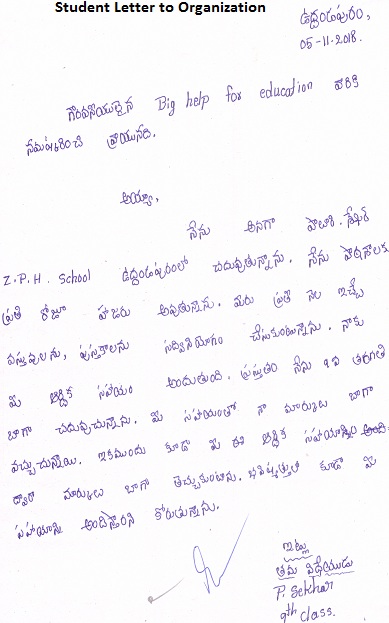 Student Letter to Organization
ఉద్దండపురం,
05-11-2018.
గౌరవనీయులైన Big help for education వారికి
నమష్కరించి వ్రాయునది.
అయ్యా,
నేను అనగా పోలారి. శేఖర్
Z.P.H. School ఉద్దండపురంలో చదువుతున్నాను. నేను పాఠశాలకు
ప్రతి రోజూ హాజరు అవుతున్నాను. మీరు ప్రతి నెల ఇచ్చే
వస్తువులను, పుస్తకాలను సద్వినియోగం చేసుకుంటున్నాను. నాకు
మీ ఆర్థిక సహాయం అందుతుంది. ప్రస్తుతం నేను 9వ తరగతి
బాగా చదువుచున్నాను. మీ సహాయంతో నా మార్కులు బాగా
వచ్చుచున్నాయి. ఇకముందు కూడా మీ ఈ ఆర్థిక సహాయాన్ని
ద్వారా మార్కులు బాగా తెచ్చుకుంటాను. భవిష్యత్తులో కూడా మీ
సహాయాన్ని అందిస్తారని కోరుతున్నాను.
ఇట్లు
తమ విధేయుడు
P. Sekhar
9th class.